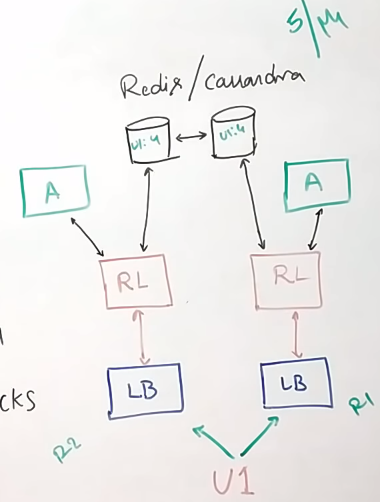 5/M
Redis/Cassandra
U1:4
U1:4
A
A
RL
RL
LB
LB
cks
R2
R1
U1